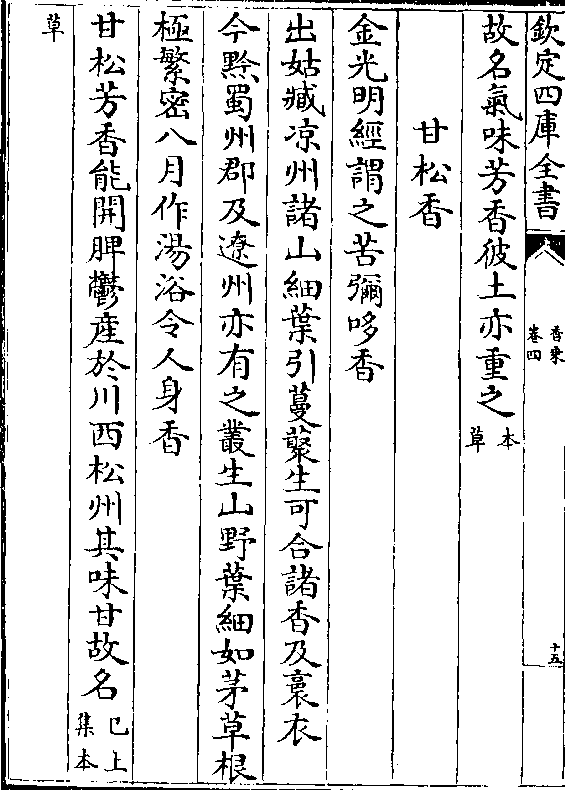 欽定四庫全書
香乗
卷四
十五
故名氣味芳香彼土亦重之本
草
甘松香
金光明經謂之苦彌哆香
出姑臧凉州諸山細葉引蔓叢生可合諸香及裛衣
今黔蜀州郡及遼州亦有之叢生山野葉細如茅草根
極繁密八月作湯浴令人身香
甘松芳香能開脾鬱産於川西松州其味甘故名已上
集本
草